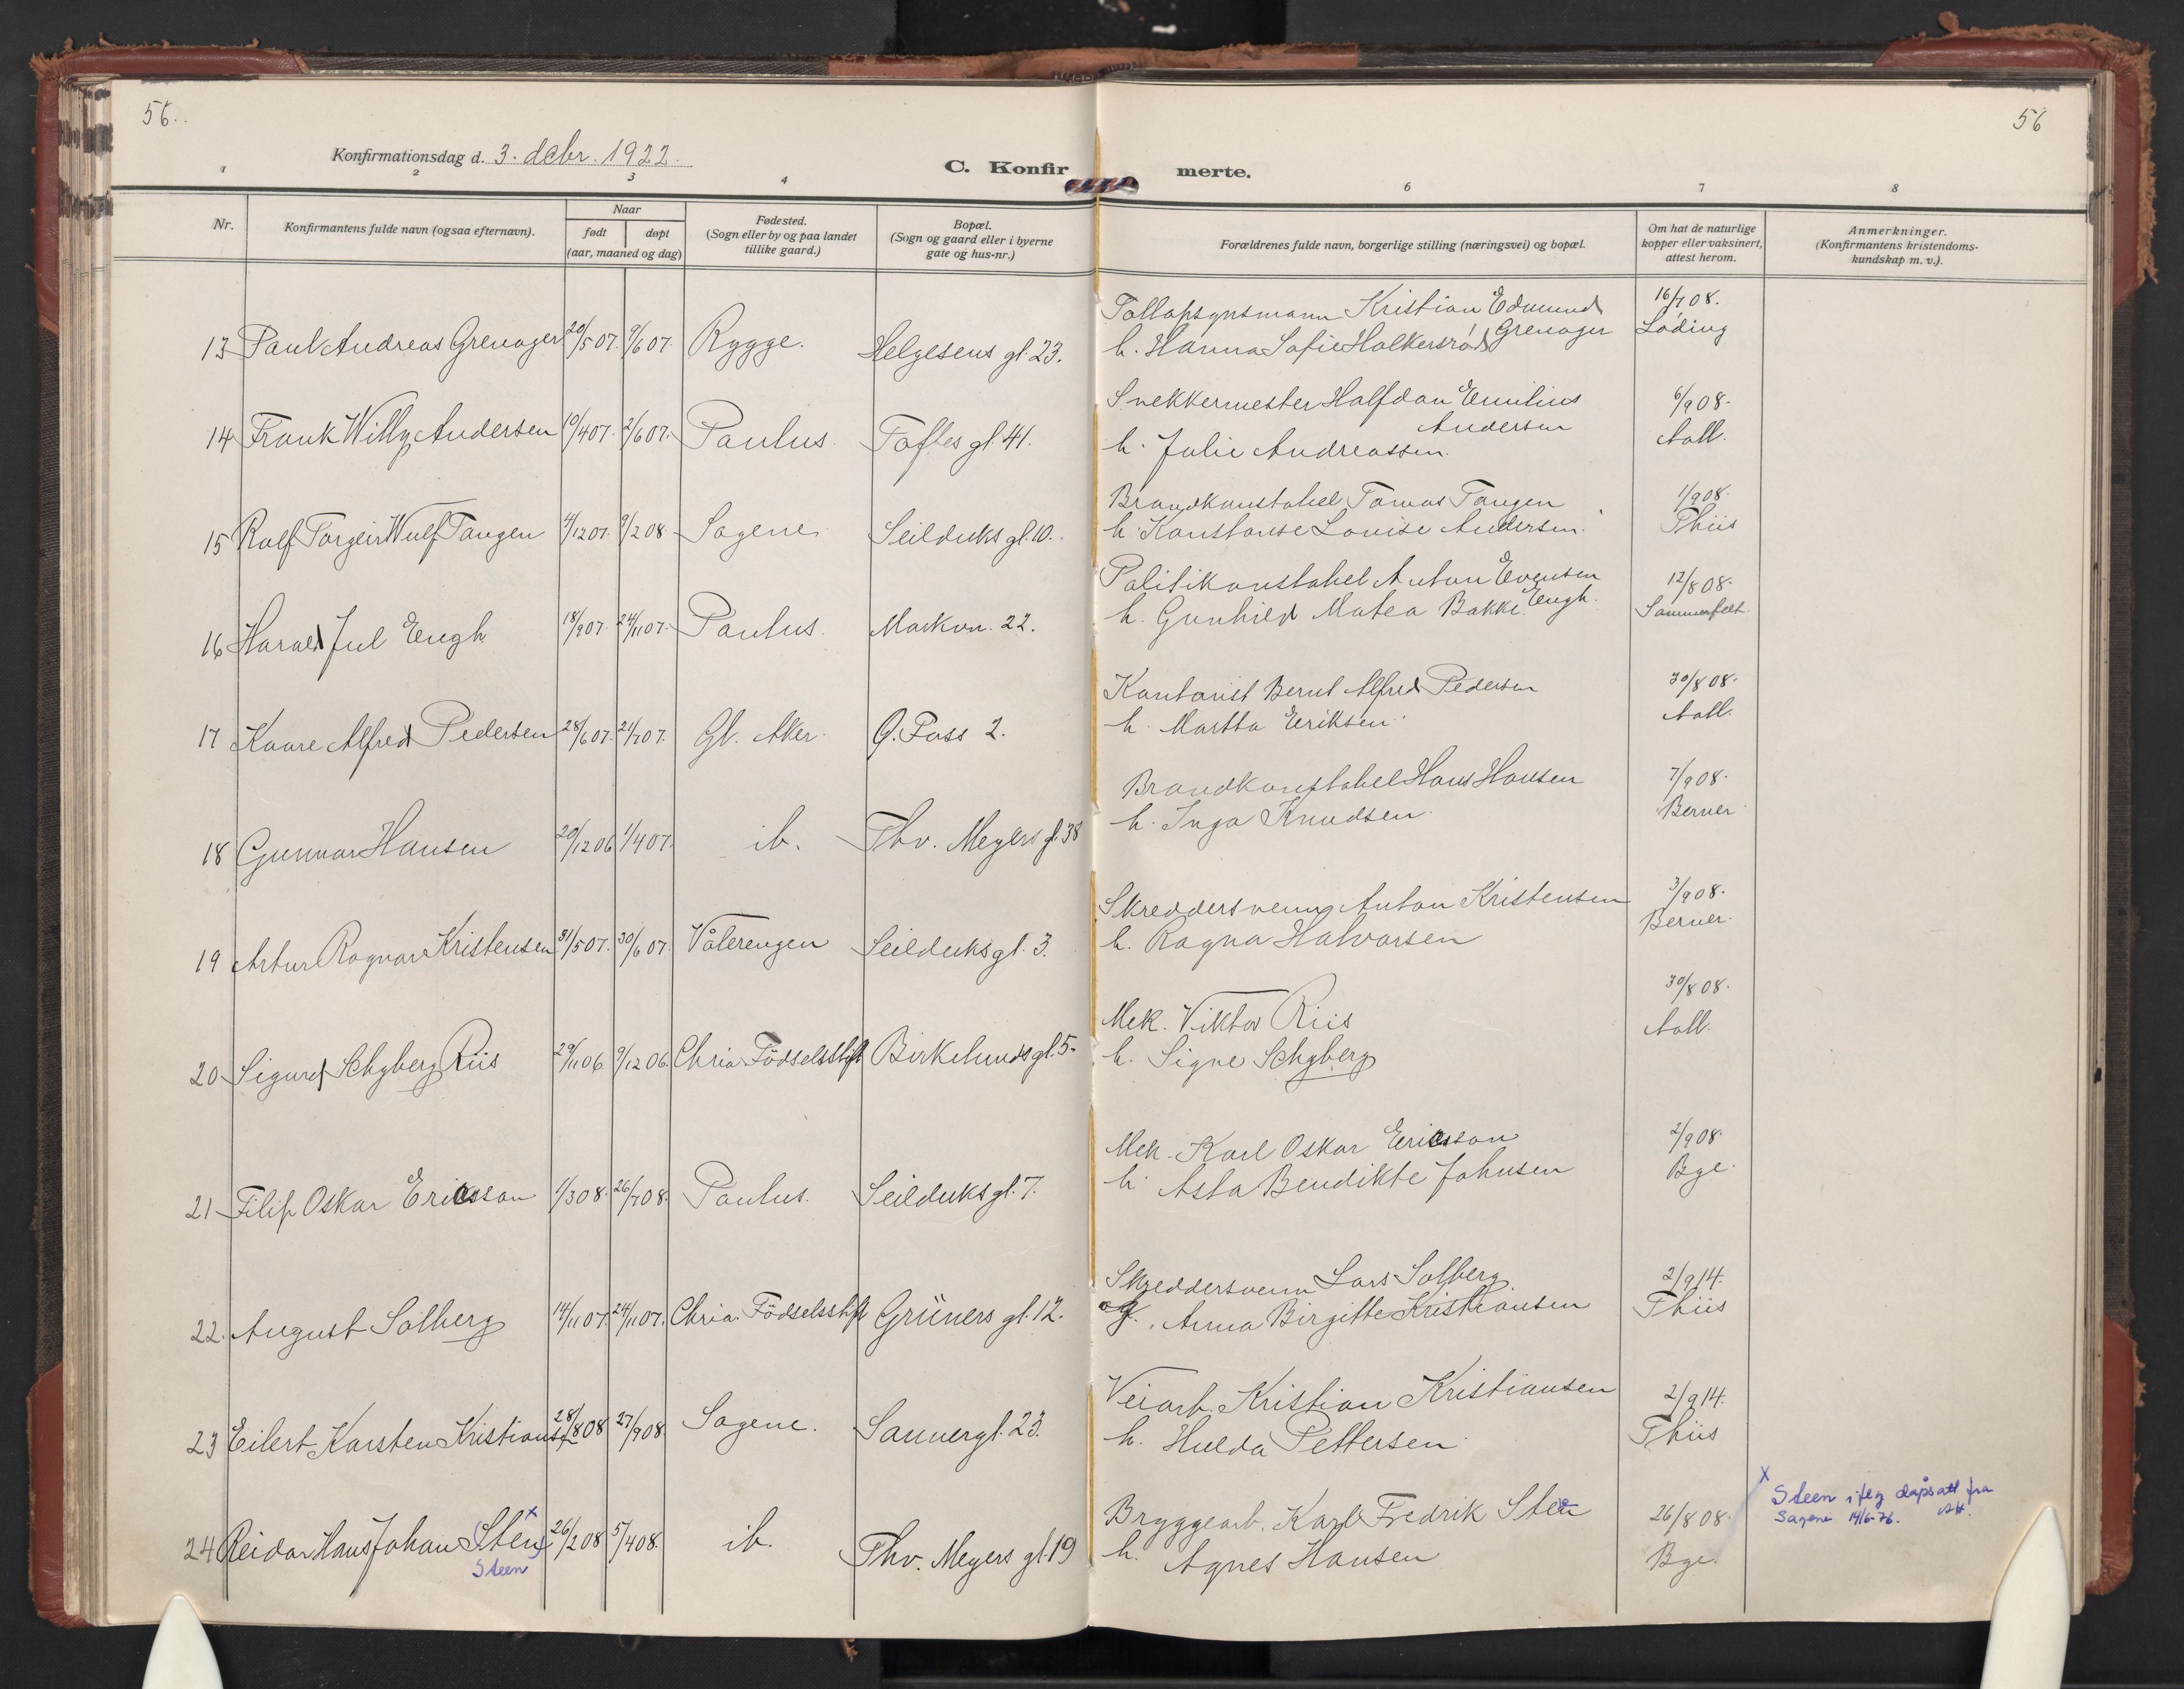 56.
56
Konfirmationsdag d. 3. debr. 1922.
C. Konfir merte.
1 2 3 4 6 7 8
Nr.
Konfirmantens fulde navn (ogsaa efternavn).
Naar
født døpt
(aar, maaned og dag)
Fødested.
(Sogn eller by og paa landet
tillike gaard.)
Bopæl.
(Sogn og gaard eller i byerne
gate og hus-nr.)
Forældrenes fulde navn, borgerlige stilling (næringsvei) og bopæl.
Om hat de naturlige
kopper eller vaksinert,
attest herom.
Anmerkninger.
(Konfirmantens kristendoms-
kundskap m. v.).
Tollopsynsmann Kristian Edmund 16/7 08.
13 Paul Andreas Grenager 20/5 07. 9/6 07. Rygge. Helgesens gt. 23. h. Hanna Sofie Holkersrød Grenager Løding
Snekkermester Halfdan Emilius 6/9 08.
Andersen
14 Frank Willy Andersen 10/4 07. 2/6 07. Paulus. Toftes gt. 41. h. Julie Andreassen. Aall.
Brandkonstabel Tomas Tangen 1/9 08.
15 Rolf Torgeir Wulf Tangen 4/12 07. 9/2 08 Sagene Seilduks gt. 10. h. Konstanse Lovise Andersen. Thiis
Politikonstabel Anton Evensen 12/8 08.
Engh.
16 Harald Jul Engh 18/9 07. 24/11 07. Paulus. Markvn. 22. h. Gunhild Matea Bakke Sommerfelt
Kontorist Bernt Alfred Pedersen 30/8 08.
17 Kaare Alfred Pedersen 28/6 07. 21/7 07. Gl. Aker. Q. Pass 2. h. Martha Eriksen. Aall.
Brandkonstabel Hans Hansen 7/9 08.
18 Gunnar Hansen 20/12 06 1/4 07. ib. Thv. Meyers gt. 38 h. Inga Knudsen. Berner
Skreddersvenn Anton Kristensen 3/9 08.
19 Artur Ragnar Kristensen 31/5 07. 30/6 07. Vålerengen Seilduksgt. 3. h. Ragna Halvorsen Berner.
Mek. Viktor Riis 30/8 08.
20 Sigurd Schyberg Riis 29/11 06. 9/12 06. Chria. Födselsstift Birkelunds gt. 5. h. Signe Schyberg Aall.
Mek. Karl Oskar Ericsson 2/9 08.
21 Filip Oskar Ericsson 1/3 08. 26/7 08. Paulus. Seilduks gt. 7. h. Asta Bendikte Johnsen Bge.
Skreddersvenn Lars Solberg 2/9 14.
22. August Solberg 14/11 07. 24/11 07. Chria. Födselsstift Grüners gt. 12. og. Anna Birgitte Kristiansen Thiis
Veiarb. Kristian Kristiansen 2/9 14.
23 Eilert Karsten Kristiansen 28/8 08 27/9 08. Sagene. Sannergt. 23. h. Hulda Pettersen Thiis
Bryggearb. Karl Fredrik Sten 26/8 08. x Steen ifølg dåpsatt fra
24 Reidar Hans Johan (Sten)x 26/2 08 5/4 08. ib. Thv. Meyers gt. 19 h. Agnes Hansen Bge. Sagene 14/6-76.
Steen